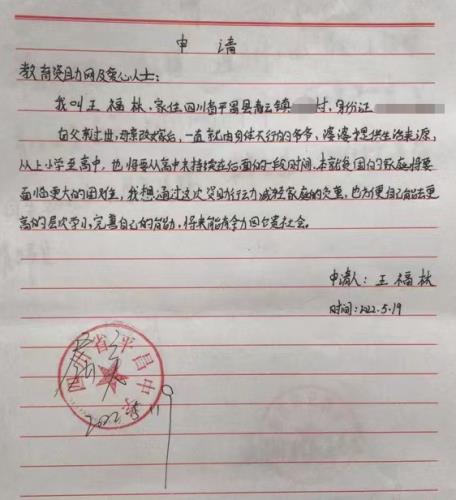 申 请
教育资助网及爱心人士:
我叫王福林,家住四川省平昌县青云镇 村,身份证
自父亲过世,母亲改嫁家后,一直就由身体不行的爷爷,婆婆提供生活来源,
从上小学至高中,也将要从高中未持续在后面的一段时间,本就贫困的家庭将要
面临更大的困难,我想通过这次资助行动减轻家庭的负重,也方便自己能去更
高的层次学习,完善自己的能力,将来能有余力回馈社会。
申请人:王福林
时间:2022.5.19
四川省平昌中